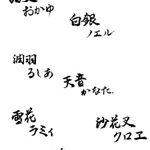 おかゆ
白銀
ノエル
潤羽
るしあ
天音
かなた
雪花
ラミィ
沙花叉
クロヱ